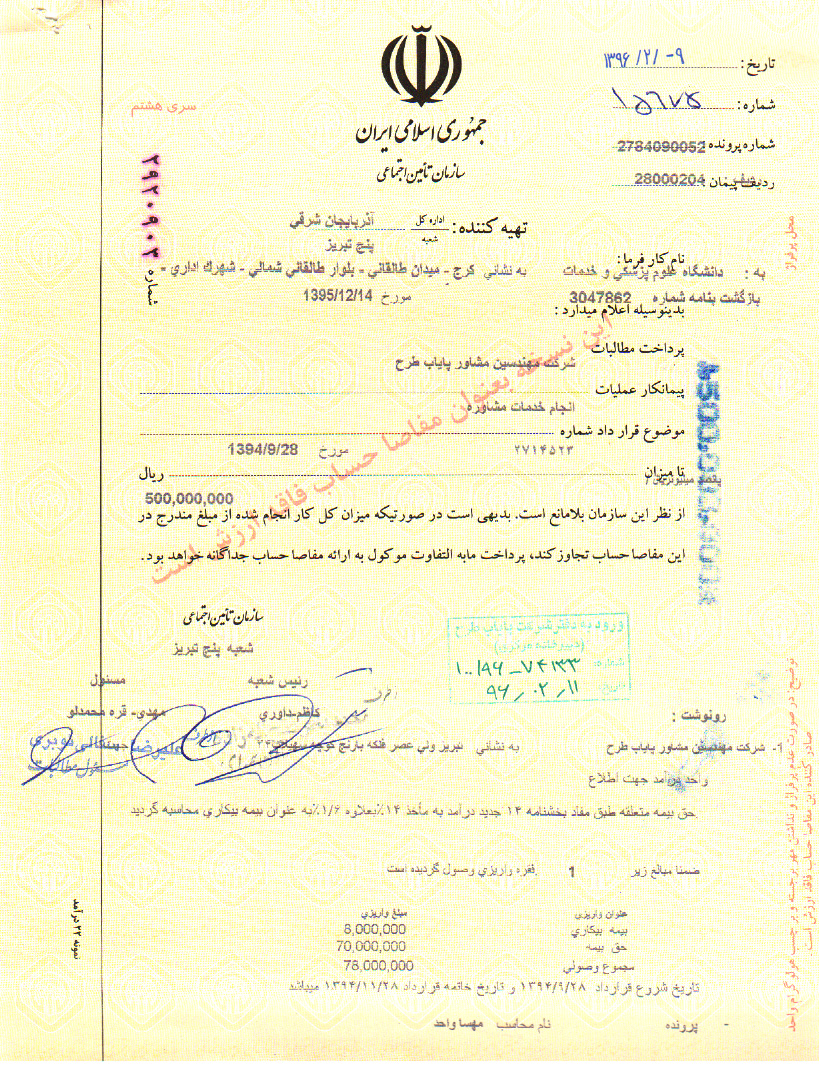 تاریخ: ۱۳۹۶/۲/-۹
شماره:
شماره پرونده: 2784090052
ردیف پیمان: 28000204
سری هشتم
جمهوری اسلامی ایران
سازمان تأمین اجتماعی
شماره ۲۹۲۰۹۰۳
تهیه کننده: اداره کل آذربایجان شرقي
شعبه پنج تبریز
نام کار فرما:
به : دانشگاه علوم پزشکي و خدمات به نشاني کرج - میدان طالقاني - بلوار طالقاني شمالي - شهرك اداري -
بازگشت بنامه شماره 3047862 مورخ 1395/12/14
بدینوسیله اعلام میدارد :
پرداخت مطالبات
شرکت مهندسین مشاور پایاب طرح
پیمانکار عملیات
انجام خدمات مشاوره
موضوع قرار داد شماره
۲۷۱۴۵۲۳ مورخ 1394/9/28
تا میزان ریال
500,000,000
از نظر این سازمان بلامانع است. بدیهی است در صورتیکه میزان کل کار انجام شده از مبلغ مندرج در
این مفاصا حساب تجاوز کند، پرداخت مابه التفاوت موکول به ارائه مفاصا حساب جداگانه خواهد بود.
این نسخه بعنوان مفاصا حساب فاقد ارزش است
سازمان تأمین اجتماعی
شعبه پنج تبریز
رئیس شعبه مسئول
کاظم-داوري مهدی- قره محمدلو
ورود به دفتر شرکت پایاب طرح
۱۰۰/۹۶-۷۴۱۳۳
۹۶/۰۲/۱۱
رونوشت :
1- شرکت مهندسین مشاور پایاب طرح به نشاني تبریز ولي عصر فلکه بارنج کوچه
واحد درآمد جهت اطلاع
حق بیمه متعلقه طبق مفاد بخشنامه ۱۴ جدید درآمد به مأخذ ۱۴٪بعلاوه ۱/۶٪به عنوان بیمه بیکاري محاسبه گردید.
ضمنا مبالغ زیر 1 فقره واریزي وصول گردیده است.
عنوان واریزي مبلغ واریزي
بیمه بیکاري 8,000,000
حق بیمه 70,000,000
مجموع وصولي 78,000,000
تاریخ شروع قرارداد ۱۳۹۴/۹/۲۸ و تاریخ خاتمه قرارداد ۱۳۹۴/۱۱/۲۸ میباشد
- پرونده نام محاسب مهسا واحد
نمونه ۲۲ درآمد
محل پرفراژ
توضیح: در صورت عدم پرفراژ و نداشتن مهر برجسته و برچسب هولوگرام واحد
صادر کننده این مفاصا حساب فاقد ارزش است.